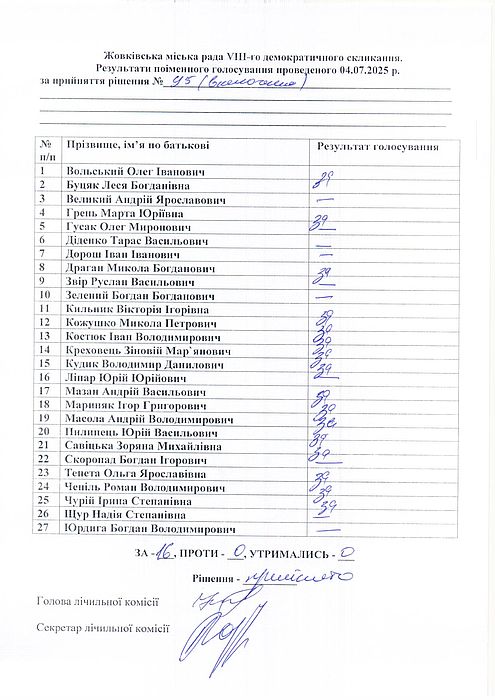 Жовківська міська рада VIII-го демократичного скликання.
Результати поіменного голосування проведеного 04.07.2025 р.
за прийняття рішення № 95 (включення)
№ п/п Прізвище, ім'я по батькові Результат голосування
1 Вольський Олег Іванович
2 Буцяк Леся Богданівна за
3 Великий Андрій Ярославович —
4 Грень Марта Юріївна
5 Гусак Олег Миронович за
6 Діденко Тарас Васильович —
7 Дорош Іван Іванович —
8 Драган Микола Богданович
9 Звір Руслан Васильович за
10 Зелений Богдан Богданович —
11 Кильник Вікторія Ігорівна
12 Кожушко Микола Петрович за
13 Костюк Іван Володимирович за
14 Креховець Зіновій Мар`янович за
15 Кудик Володимир Данилович за
16 Ліпар Юрій Юрійович за
17 Мазан Андрій Васильович
18 Мариняк Ігор Григорович за
19 Масола Андрій Володимирович за
20 Пилипець Юрій Васильович за
21 Савіцька Зоряна Михайлівна за
22 Скоропад Богдан Ігорович за
23 Тенета Ольга Ярославівна
24 Чепіль Роман Володимирович за
25 Чурій Ірина Степанівна за
26 Щур Надія Степанівна за
27 Юрдига Богдан Володимирович —
ЗА - 16, ПРОТИ - 0, УТРИМАЛИСЬ - 0
Рішення - прийнято
Голова лічильної комісії
Секретар лічильної комісії